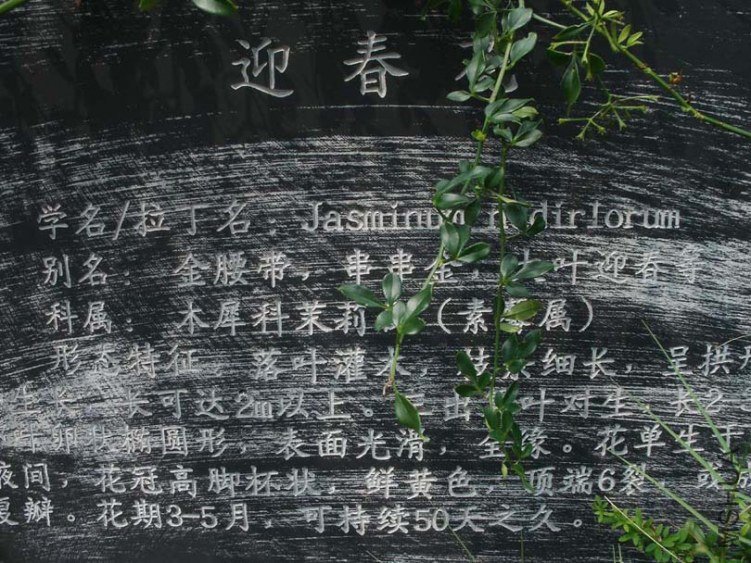 迎春
学名/拉丁名: Jasminum nudiflorum
别名: 金腰带, 串串金 叶迎春等
科属: 木犀科茉莉 (素馨属)
形态特征 落叶灌木, 枝条细长, 呈拱
生长 长可达2m以上。三出 叶对生 长2
卵状椭圆形, 表面光滑, 全缘。花单生于
夜间, 花冠高脚杯状, 鲜黄色, 顶端6裂, 或成
复瓣。花期3-5月, 可持续50天之久。